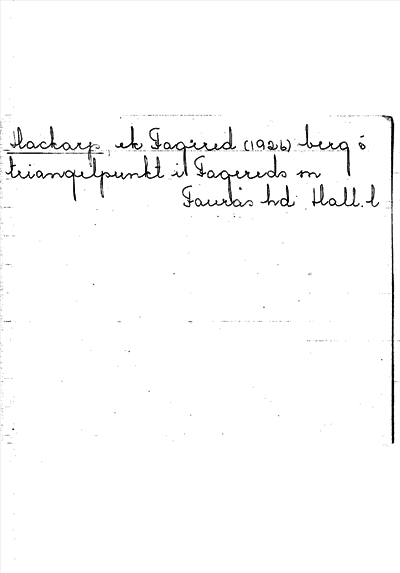 Hackarp, ek Fagered (1926) berg ö
triangelpunkt i Fagereds sn
Faurås hd Hall. l